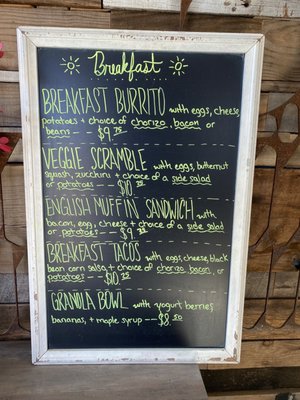 Breakfast
BREAKFAST BURRITO with eggs, cheese,
potatoes + choice of chorizo, bacon, or
beans -- $9
VEGGIE SCRAMBLE with eggs, butternut
squash, zucchini + choice of a side salad
or potatoes --- $10
ENGLISH MUFFIN SANDWICH with
bacon, egg, cheese + choice of a side salad
or potatoes --- $9
BREAKFAST TACOS with eggs, cheese, black
bean corn salsa + choice of chorizo, bacon, or
potatoes -- $10
GRANOLA BOWL with yogurt berries
bananas, + maple syrup -- $8 50